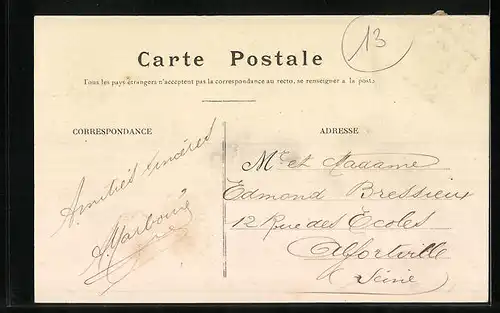 13
Carte Postale
Tous les pays étrangers n'acceptent pas la correspondance au recto, se renseigner à la poste
CORRESPONDANCE
ADRESSE
Amitiés sincères
Mr et Madame
Edmond Bressieux
12 Rue des Écoles
Alfortville
Seine